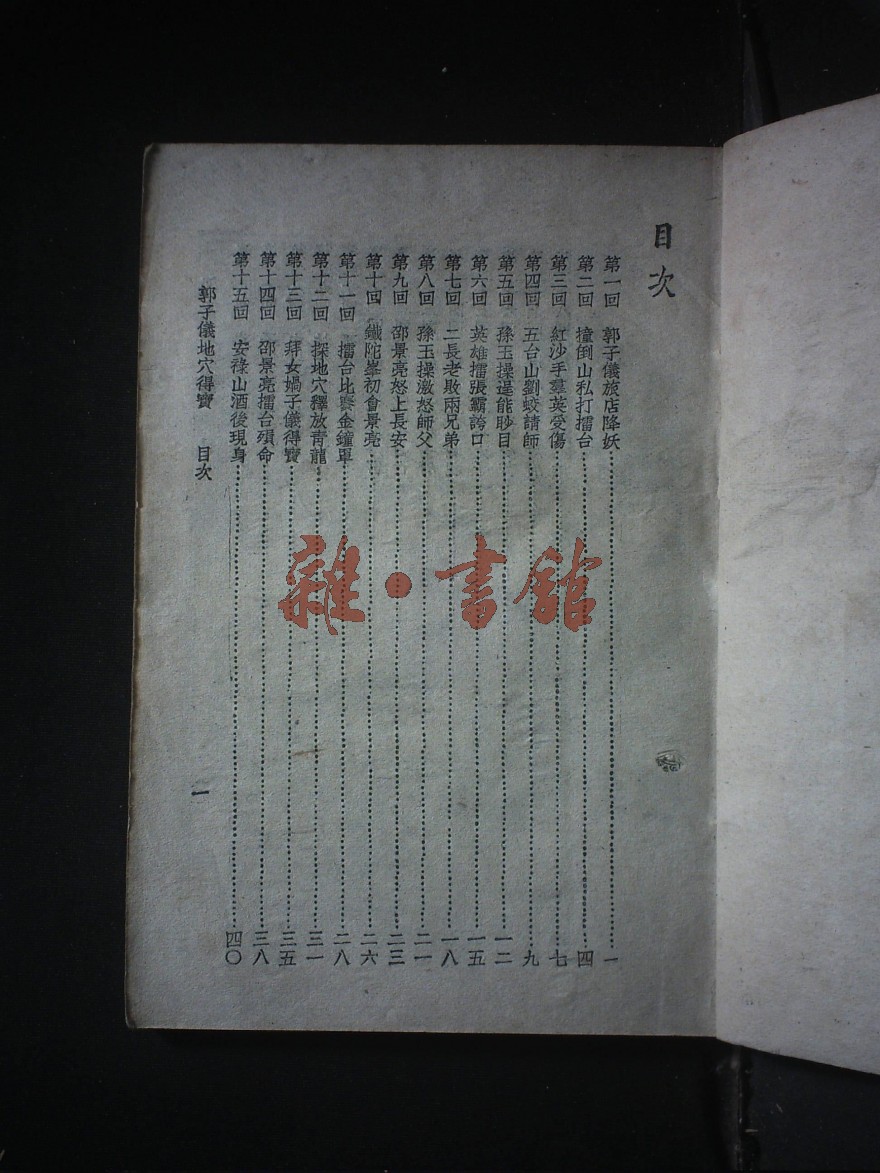 目次
第一回 郭子儀旅店降妖……一
第二回 撞倒山私打擂台……四
第三回 紅沙手羣英受傷……七
第四回 五台山劉蛟請師……九
第五回 孫玉操逞能眇目……一二
第六回 英雄擂張霸誇口……一五
第七回 二長老敗兩兄弟……一八
第八回 孫玉操激怒師父……二一
第九回 邵景亮怒上長安……二三
第十回 鐵陀峯初會景亮……二六
第十一回 擂台比賽金鐘罩……二八
第十二回 探地穴釋放青龍……三一
第十三回 拜女媧子儀得寶……三五
第十四回 邵景亮擂台殞命……三八
第十五回 安祿山酒後現身……四〇
郭子儀地穴得寶 目次 一
雜·書館